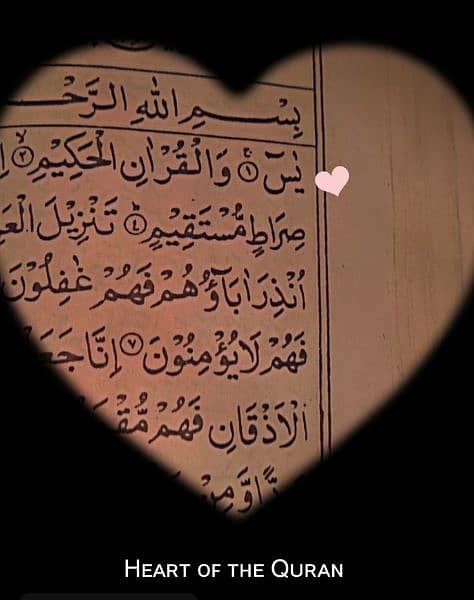 بِسْمِ اللّٰهِ الرَّحْـ
يٰسٓ ۝١ وَالْقُرْاٰنِ الْحَكِيْمِ ۝٢
صِرَاطٍ مُّسْتَقِيْمٍ ۝٤ تَنْزِيْلَ
اُنْذِرَ اٰبَآؤُهُمْ فَهُمْ غٰفِلُوْنَ
فَهُمْ لَا يُؤْمِنُوْنَ ۝٧ اِنَّا
الْاَذْقَانِ فَهُمْ
Heart of the Quran